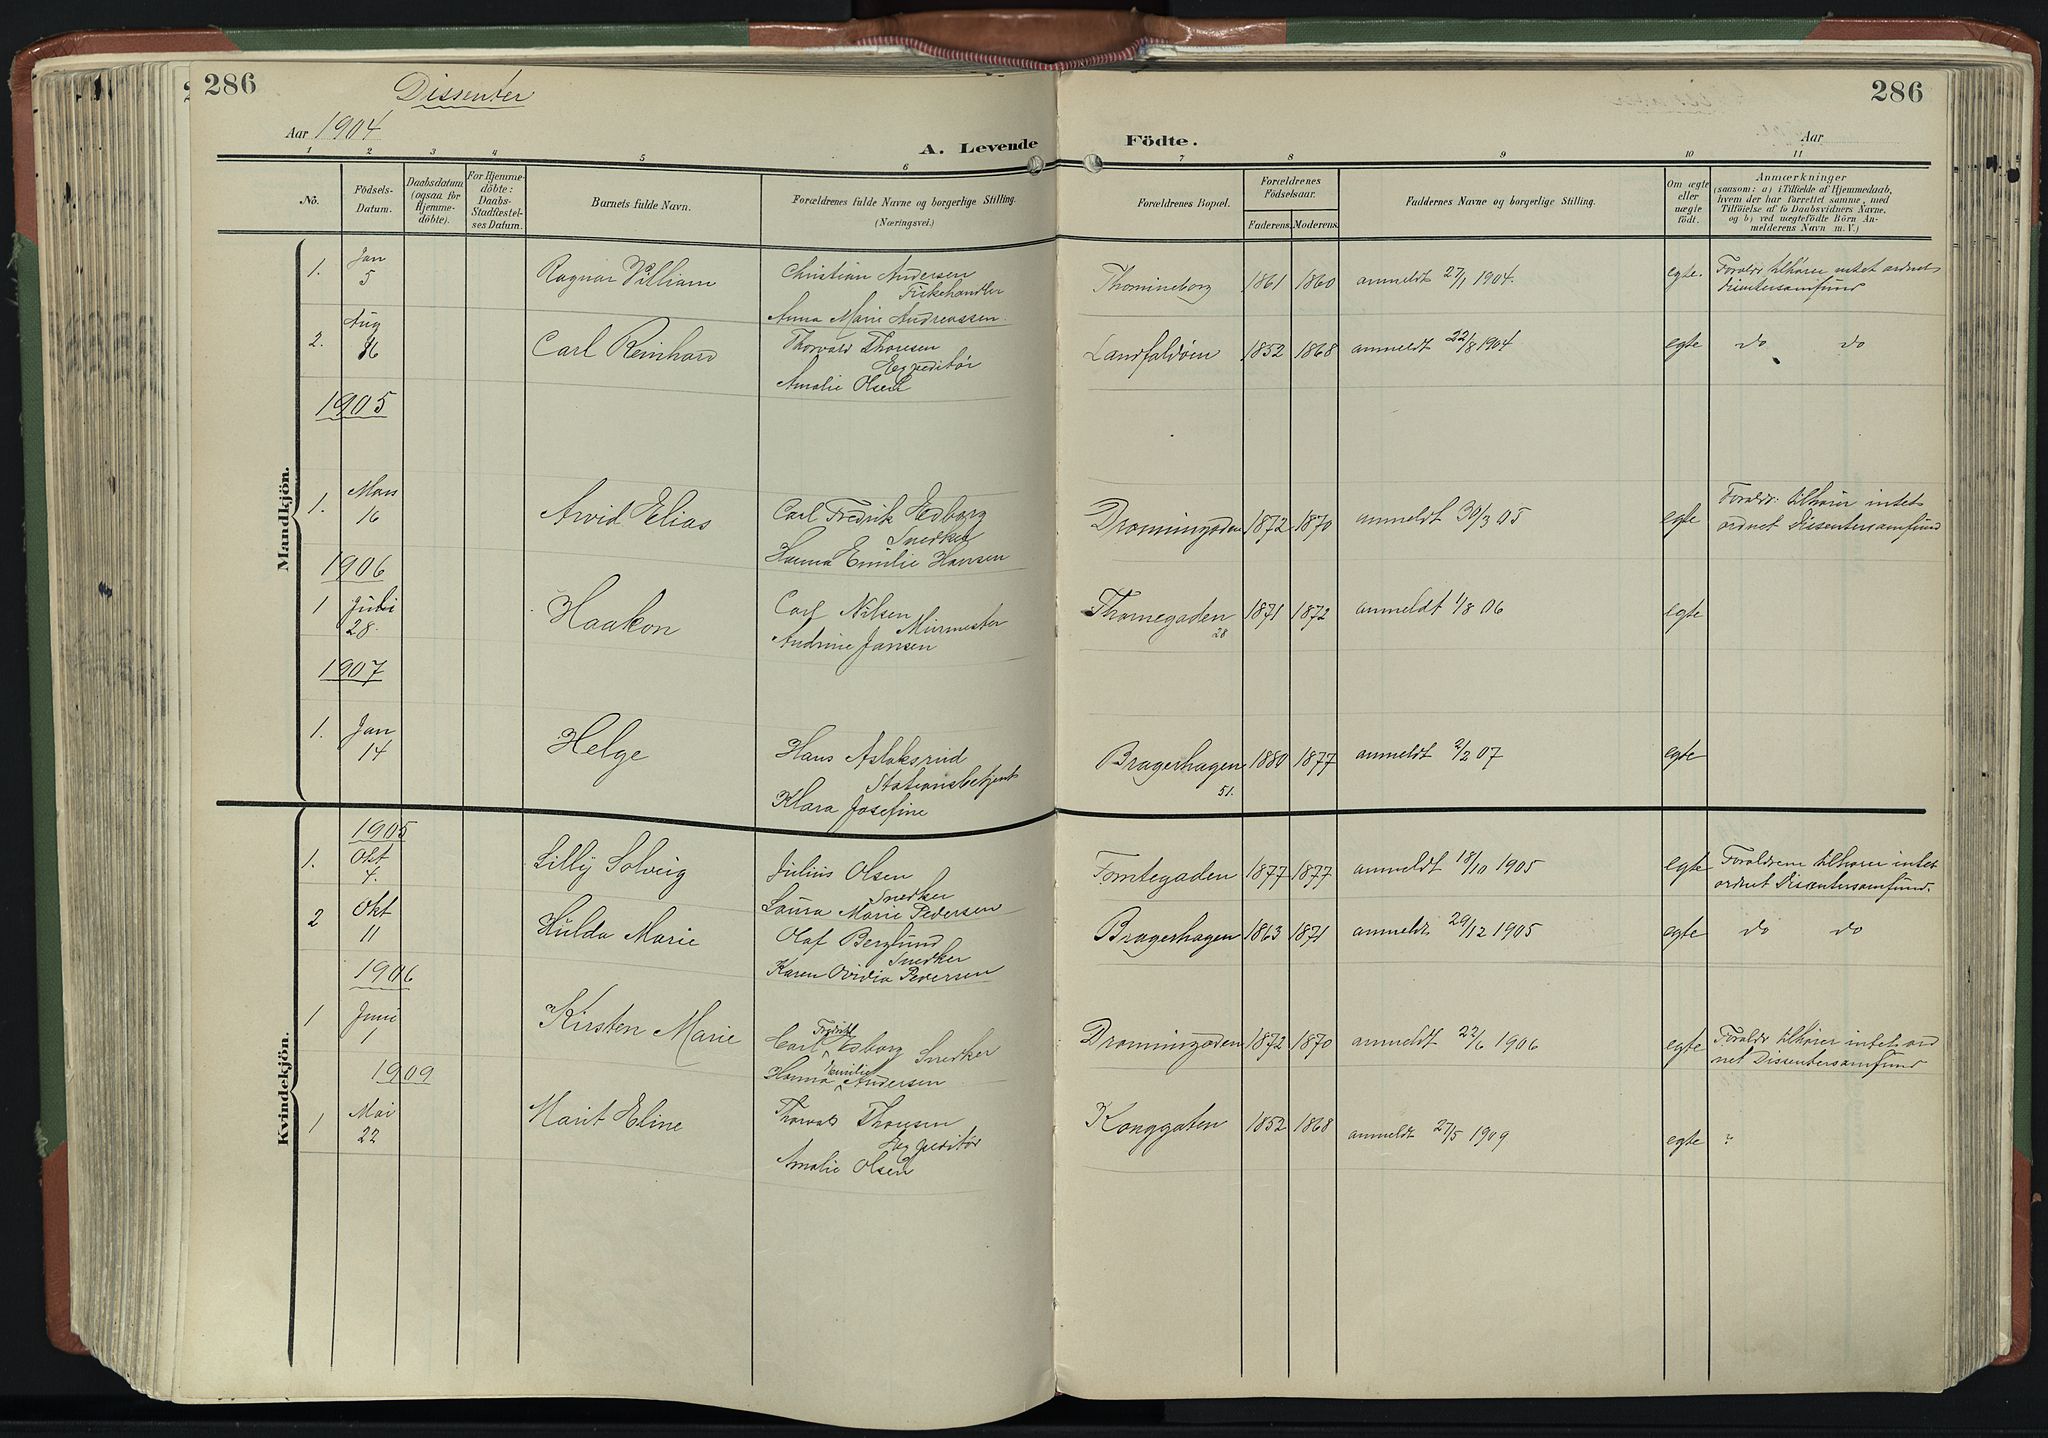 286
Dissenter
286
Aar 1904
A. Levende
Födte.
Aar
1 2 3 4 5 6 7 8 9 10 11
No.
Födsels-
Datum.
Daabsdatum
(ogsaa for
Hjemme-
döbte).
For Hjemme-
döbte:
Daabs-
Stadfæstel-
ses Datum.
Barnets fulde Navn.
Forældrenes fulde Navne og borgerlige Stilling.
(Næringsvei.)
Forældrenes Bopæl.
Forældrenes
Födselsaar.
Faderens. Moderens.
Faddernes Navne og borgerlige Stilling.
Om ægte
eller
uægte
födt.
Anmærkninger
(saasom: a) i Tilfælde af Hjemmedaab,
hvem der har forrettet samme, med
Tilföielse af to Daabsvidners Navne,
og b) ved uægtefödte Börn An-
melderens Navn m. V.)
Mandkjön.
1. Jan 5 Ragnar Villiam Christian Andersen
Fiskehandler
Anna Marie Andreassen.
Thomineborg 1861 1860 anmeldt 27/1 1904. egte. Foraldr tilhører intet ordnet
Disentersamfund
2. Aug 16 Carl Reinhard Thorvald Thonsen
Expeditør
Amalie Olsen
Landfaldøen 1852 1868 anmeldt 22/8 1904 egte do do
1905
1. Mars 16 Arvid Elias Carl Fredrik Edborg
Snedker
Hanna Emilie Hansen
Dronningaden 1872 1870 anmeldt 30/3 05 egte Foraldr. tilhører intet
ordnet Dissentersamfund
1906
1 Juli 28. Haakon Carl Nilsen
Murmester
Andrine Jansen
Thornegaden 28 1871 1872 anmeldt 1/8 06 egte
1907
1. Jan 14 Helge Hans Aslaksrud
Stationsbetjent
Klara Josefine
Bragerhagen 51. 1880 1877 anmeldt 2/2 07 egte
Kvindekjön.
1905
1. Okt 4. Lilly Solveig Julius Olsen
Snedker
Laura Marie Pedersen
Tomtegaden 1877 1877 anmeldt 18/10 1905 egte Foraldrene tilhører intet
ordnet Disentersamfund.
2 Okt 11 Hulda Marie Olaf Berglund
Snedker
Karen Ovidia Pedersen
Bragerhagen 1863 1871 anmeldt 29/12 1905 egte do do
1906
1 Juni 1 Kirsten Marie Fredrikl
Carl Esborg Snedker
Emilie
Hanna Andersen
Dronningaden 1872 1870 anmeldt 22/6 1906 egte Foraldr tilhører intet ord
net Dissentersamfund
1909
1 Mai 22 Marit Eline Thorvald Thonsen
Expeditør
Amalie Olsen
Konggaten 1852 1868 anmeldt 27/5 1909 egte ?